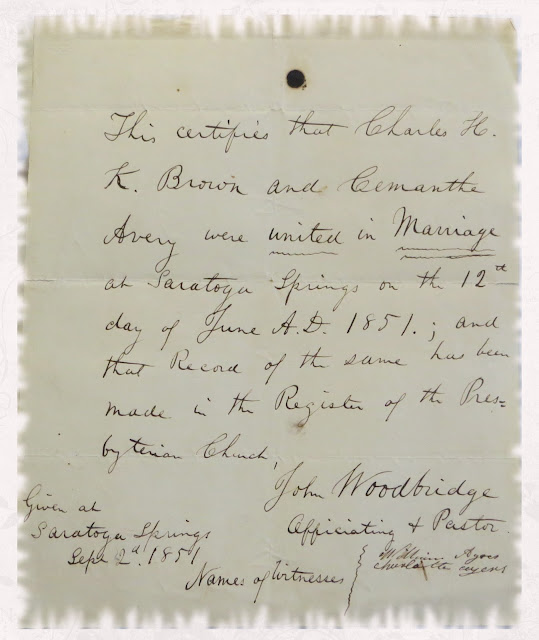 This certifies that Charles H.
K. Brown and Cemanthe
Avery were united in Marriage
at Saratoga Springs on the 12th
day of June A.D. 1851.; and
that Record of the same has been
made in the Register of the Pres=
byterian Church,
John Woodbridge
Officiating & Pastor.
Given at
Saratoga Springs
Sept 2d. 1851
Names of Witnesses
William Ayers
Charlotte Ayers